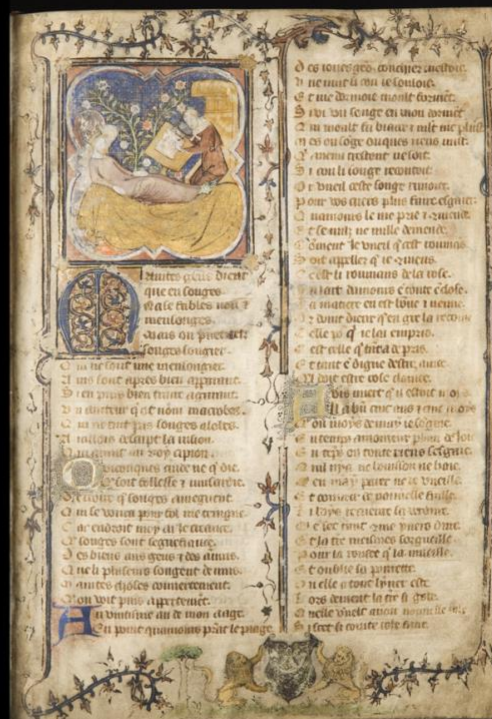 Maintes gens dient
que en songes
Na se fables non &
mensonges
Mais on puet tel
songes songier
Qui ne sont mie mensongier
Ains sont apres bien apparant
Si en puis bien traire a garant
Un auteur q ot nom macrobes
Qui ne tint pas songes a lobes
la vision
Qui avint au roy cipion
Quiconques cuide ne q die
soit folesse & musardie
De croire q songes aviegnent
Qui se vorra pour fol me tiengne
Car endroit moy ai je fiance
Q songes soit segnefiance
Des biens aus gens & des anuis
Que li plusieurs songent de nuis
Maintes choses couvertement
Con voit puis appertement
Au vintisme an de mon aage
En point quamours prant le paage
ne mut il cou
Et me dormoie moult forment
Si vi un songe en mon dormant
Qui moult fu biaux & mlt me plut
Mes en ce songe onques riens nut
avenu du tout ne soit
Si com li songe recontoit
Or vueil cest songe rimoier
Pour vos cuers plus faire esgaier
Quamours le me prie & commande
Et se nulz ne nulle demande
Comment je vueil q cest rommans
Soit appellez q je commens
Cest li roumans de la rose
Ou lart damours est toute close
La matiere en est bone & neuve
Or doint dieu q en gre la recoive
Celle pour q je lai empris
Cest celle q tant a de pris
Et tant est digne destre amee
Quel doit estre rose clamee
Avis mert q il estoit
Il a bien cinc ans & cinc mois
Quou moys de may je songoie
Ou temps amoureux plain de joie
Ou temps ou toute riens sesgaie
Q nulz ne voit buisson ne haie
Qui en may parer ne se vueille
Et couvrir de nouvelle fueille
Et la terre meismes sorgueille
Pour la rousee q la mueille
Et oublie la povrete
Ou elle a tout lyver este
Lors devient la tre si gobe
Quelle vuelt avoir nouvelle robe
Si scet si cointe robe faire